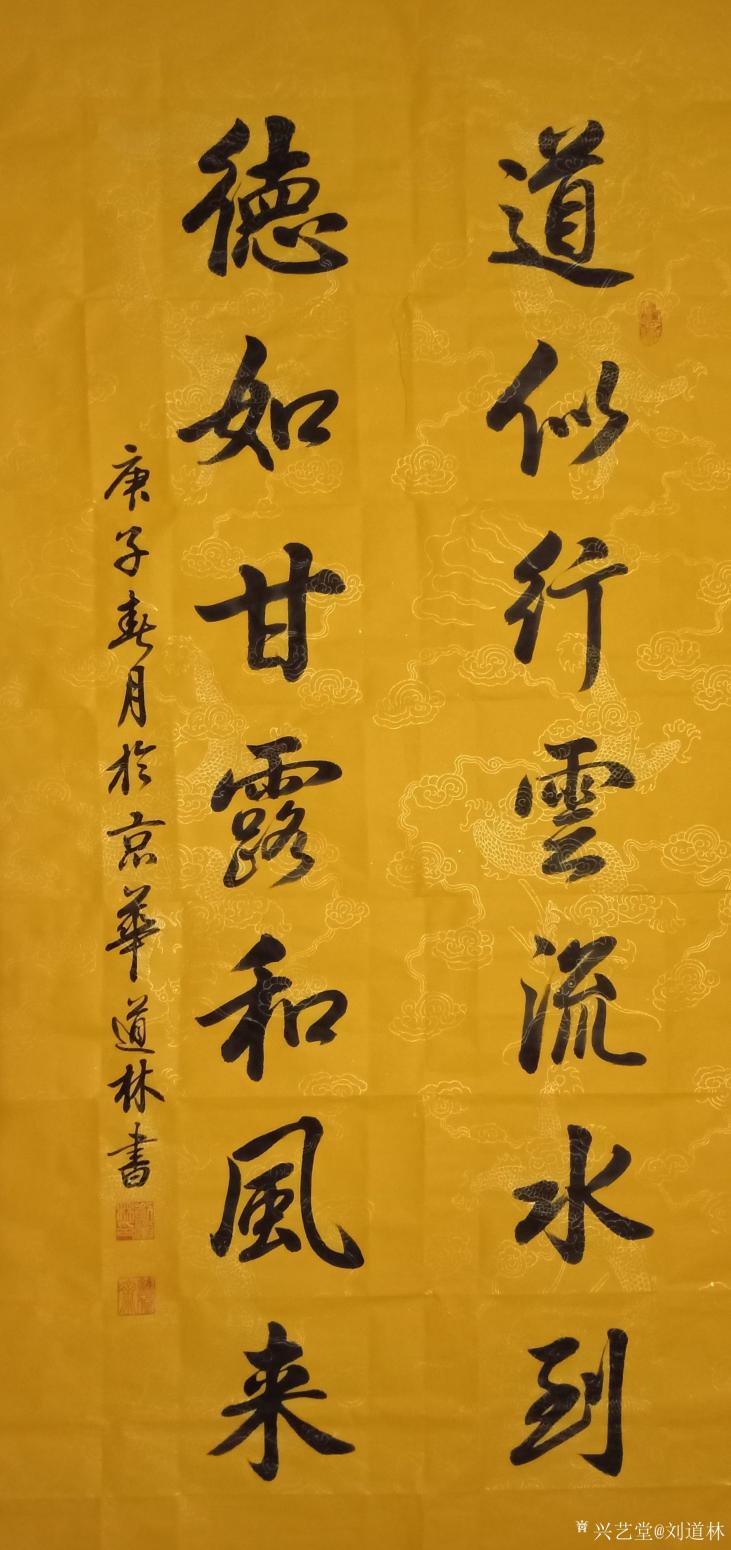 道似行雲流水到
德如甘露和風来
庚子春月於京華道林書
兴艺堂@刘道林